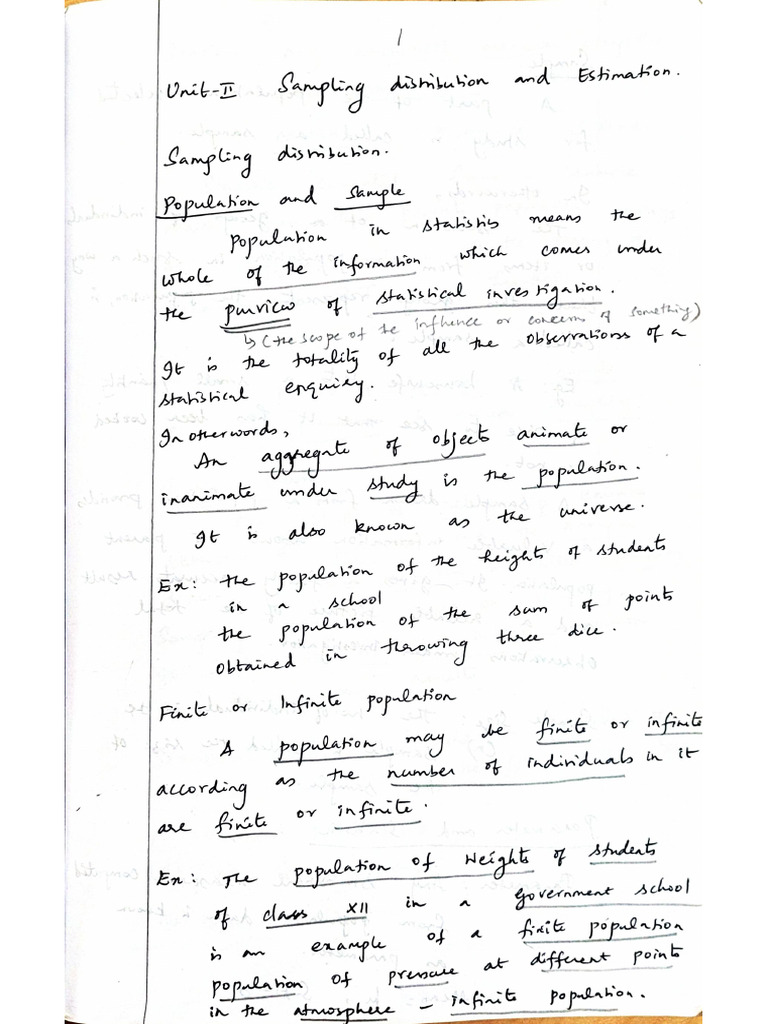 1
Unit-II Sampling distribution and Estimation.
Sampling distribution.
Population and Sample
Population in statistics means the
whole of the information which comes under
the purview of statistical investigation.
↳ (the scope of the influence or concerns of something)
It is the totality of all the observations of a
statistical enquiry.
In otherwords,
An aggregate of object animate or
inanimate under study is the population.
It is also known as the universe.
Ex: the population of the heights of students
in a school
the population of the sum of points
obtained in throwing three dice.
Finite or Infinite population
A population may be finite or infinite
according as the number of individuals in it
are finite or infinite.
Ex: The population of weights of students
of class XII in a government school
is an example of a finite population
population of pressure at different points
in the atmosphere - infinite population.